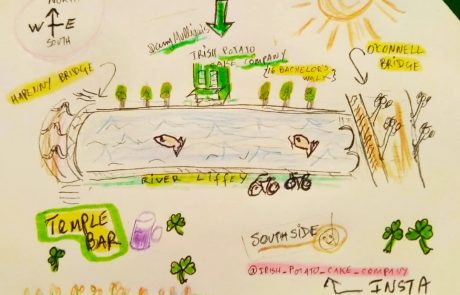 NORTH
W E
SOUTH
Dan Mulligan's
IRISH POTATO
CAKE COMPANY
16 BACHELOR'S
WALK
O'CONNELL
BRIDGE
HAPENNY BRIDGE
RIVER LIFFEY
TEMPLE
BAR
SOUTHSIDE
@IRISH_POTATO_CAKE_COMPANY
INSTA